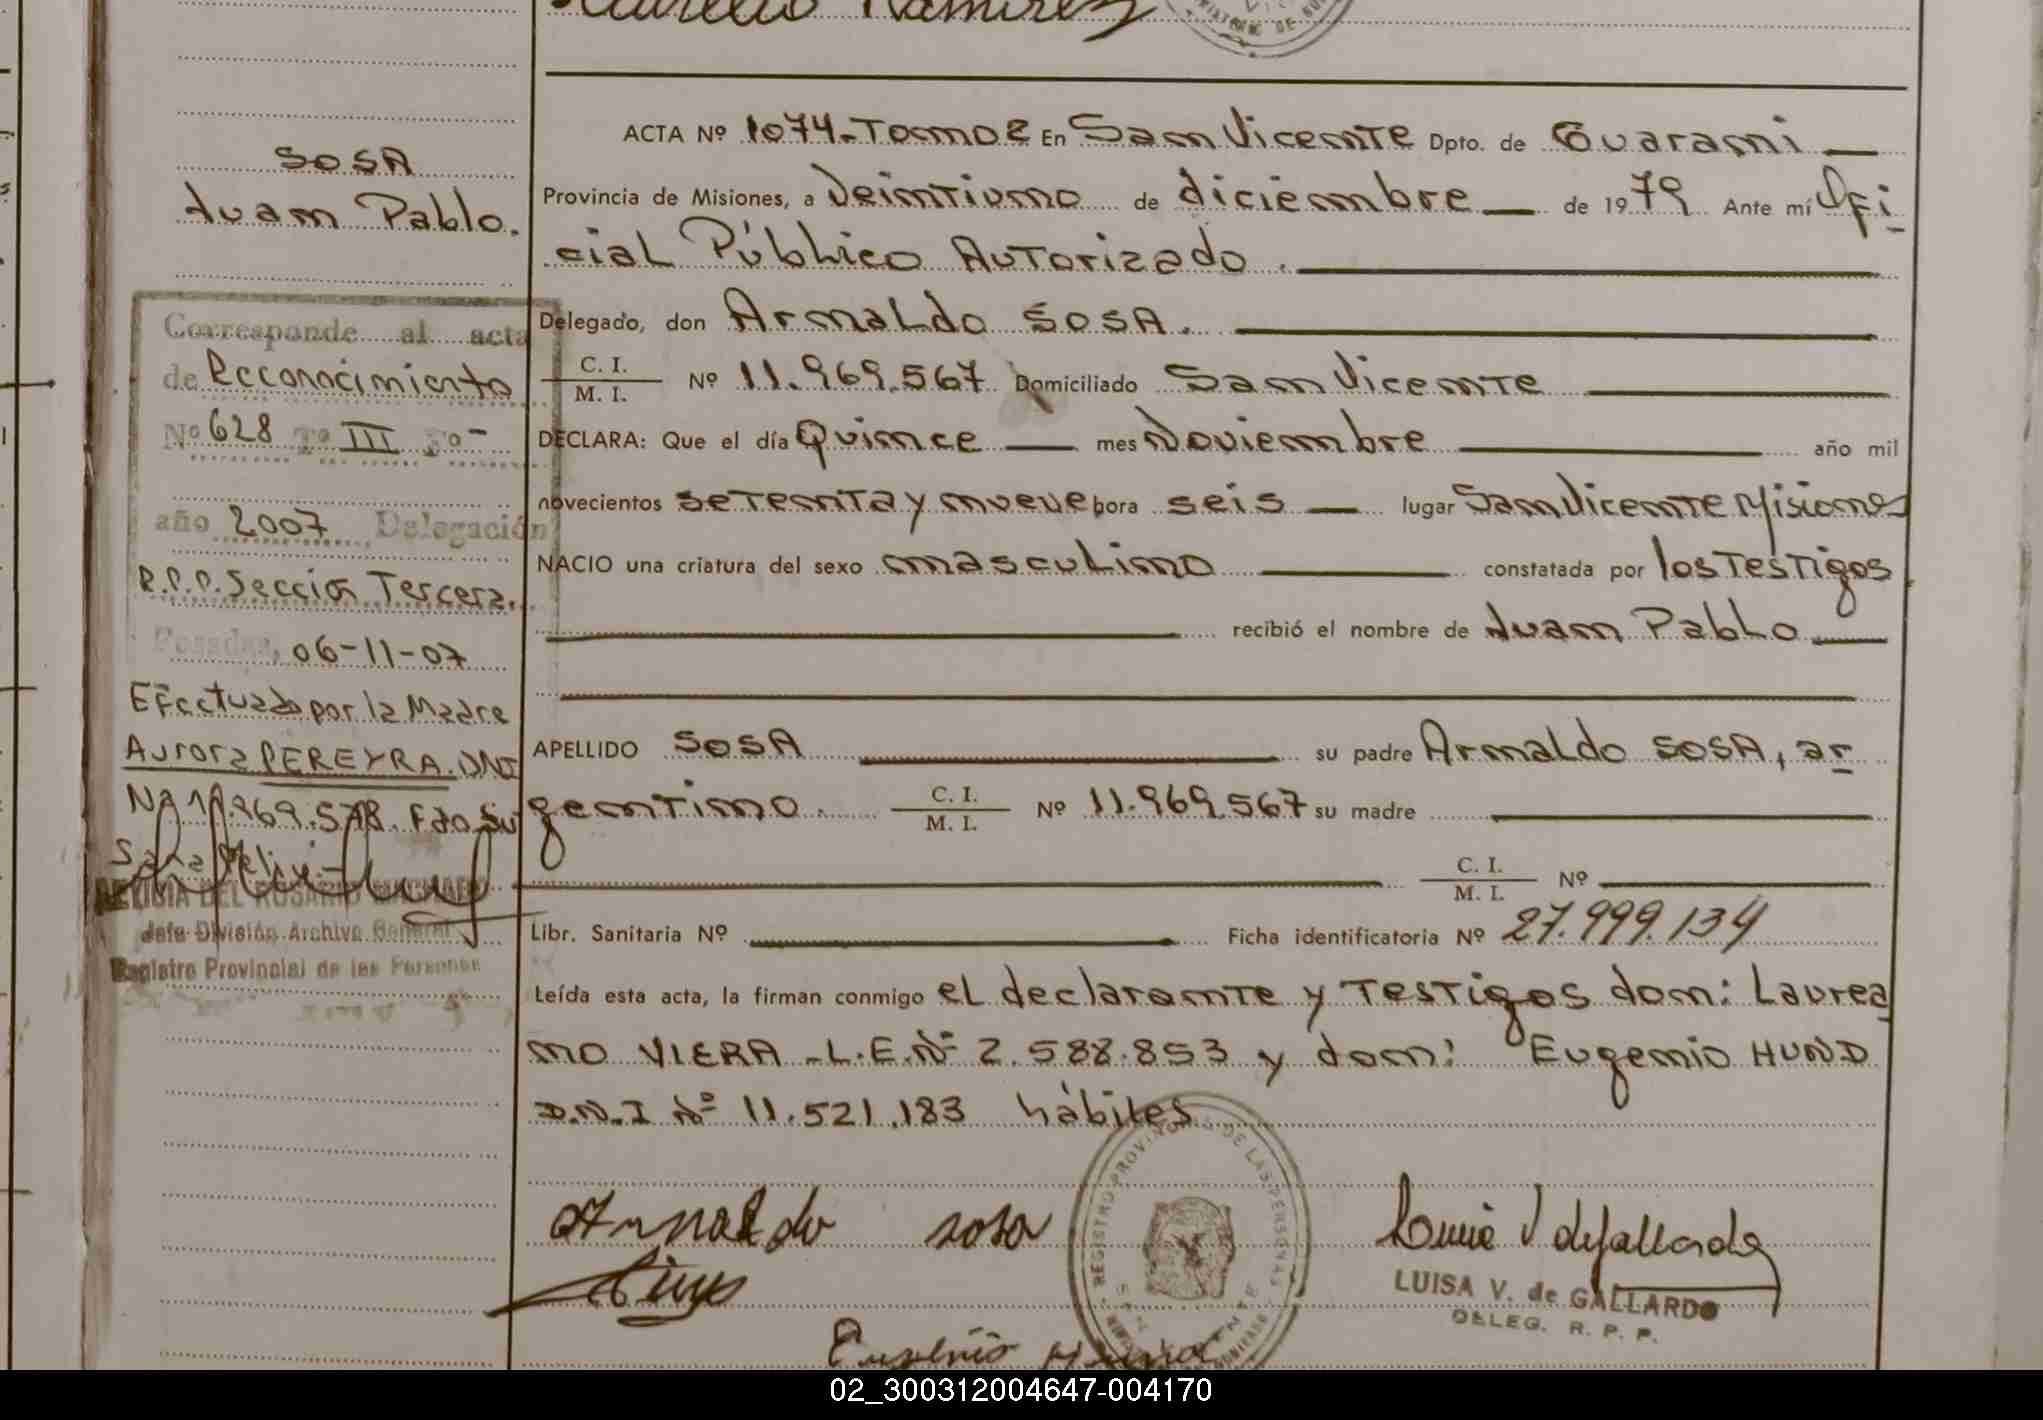 Aurelio Ramirez
SOSA
Juan Pablo.
Corresponde al acta
de Reconocimiento
Nº 628 Tº III Fº -
año 2007 Delegación
R.P.P. Sección Tercera.
Posadas, 06-11-07
Efectuado por la Madre
Aurora PEREYRA. DNI
Fdo Su
sana
DEL ROSARIO
Jefe División Archivo General
Registro Provincial de las Personas
ACTA Nº 1074-Tomo 2 En San Vicente Dpto. de Guarani
Provincia de Misiones, a Veintiuno de diciembre de 1979 Ante mí Ofi
cial Público Autorizado.
Delegado, don Arnaldo SOSA.
C. I.
M. I. Nº 11.969.567 Domiciliado San Vicente
DECLARA: Que el día Quince mes Noviembre año mil
novecientos setenta y nueve hora seis lugar San Vicente Misiones
NACIO una criatura del sexo masculino constatada por los Testigos
recibió el nombre de Juan Pablo
APELLIDO SOSA su padre Arnaldo SOSA, ar
gentino. C. I.
M. I. Nº 11.969.567 su madre
C. I.
M. I. Nº
Libr. Sanitaria Nº Ficha identificatoria Nº 27.999.134
Leída esta acta, la firman conmigo el declarante y Testigos don: Laurea
no VIERA -L.E.Nº 2.588.853 y don: Eugenio HUND
D.N.I Nº 11.521.183 hábiles
Arnaldo sosa
REGISTRO PROVINCIAL DE LAS PERSONAS
LUISA V. de GALLARDO
DELEG. R. P. P.
Eugenio
02_300312004647-004170